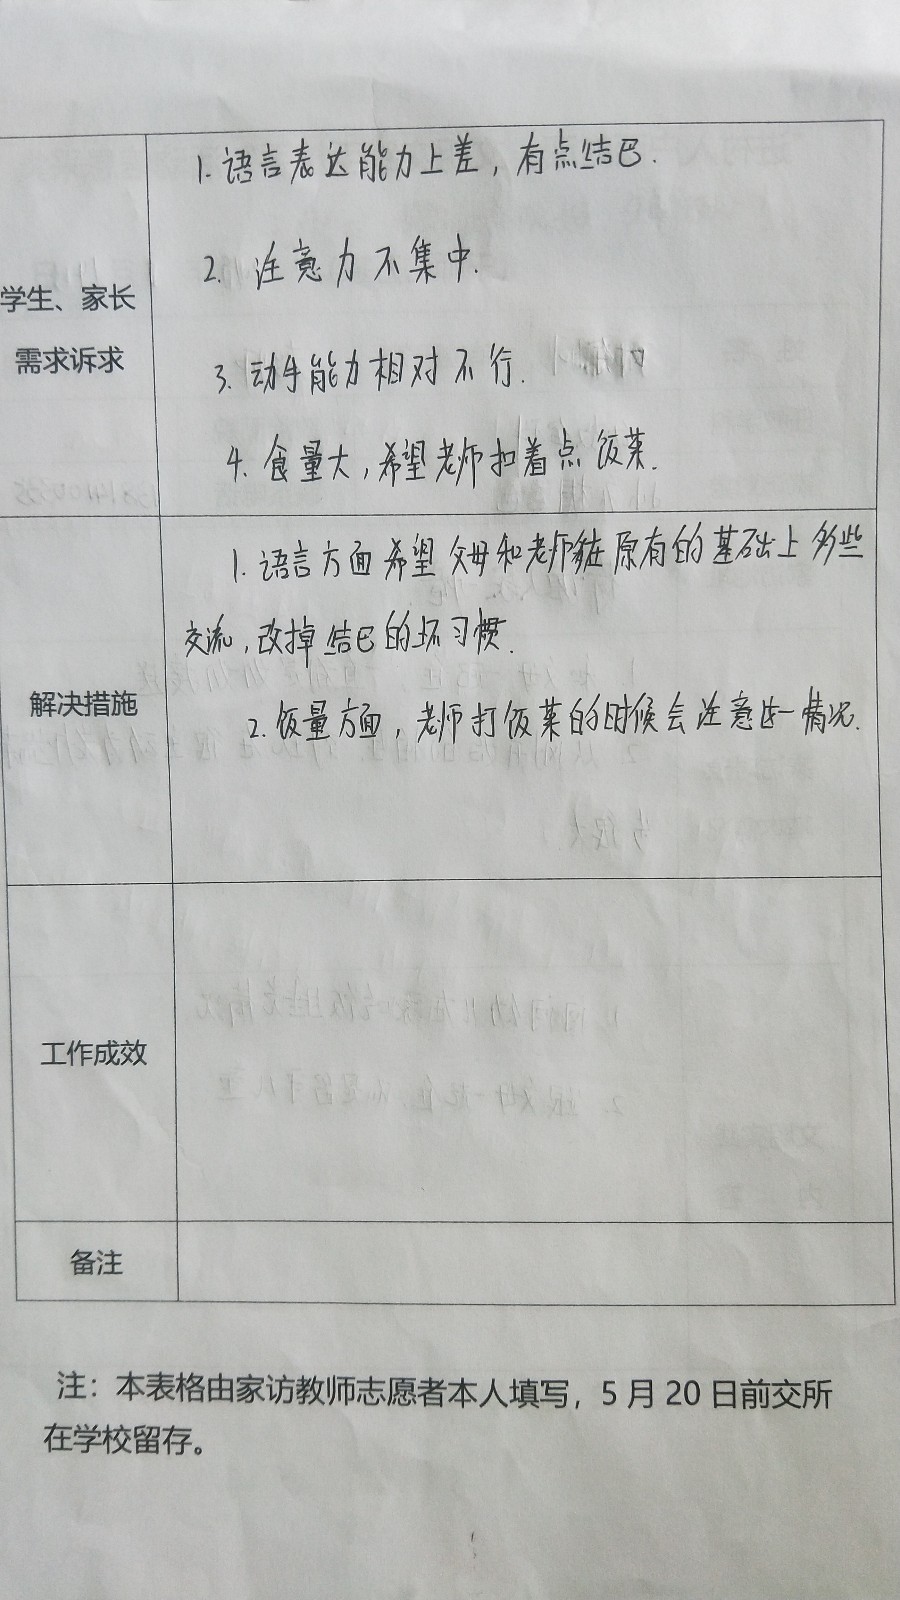 1. 语言表达能力上差，有点结巴.
2. 注意力不集中.
学生、家长
需求诉求
3. 动手能力相对不行.
4. 食量大，希望老师扣着点饭菜.
1. 语言方面希望父母和老师能在原有的基础上多些
交流，改掉结巴的坏习惯.
解决措施
2. 饭量方面，老师打饭菜的时候会注意这一情况.
工作成效
备注
注：本表格由家访教师志愿者本人填写，5 月 20 日前交所
在学校留存。